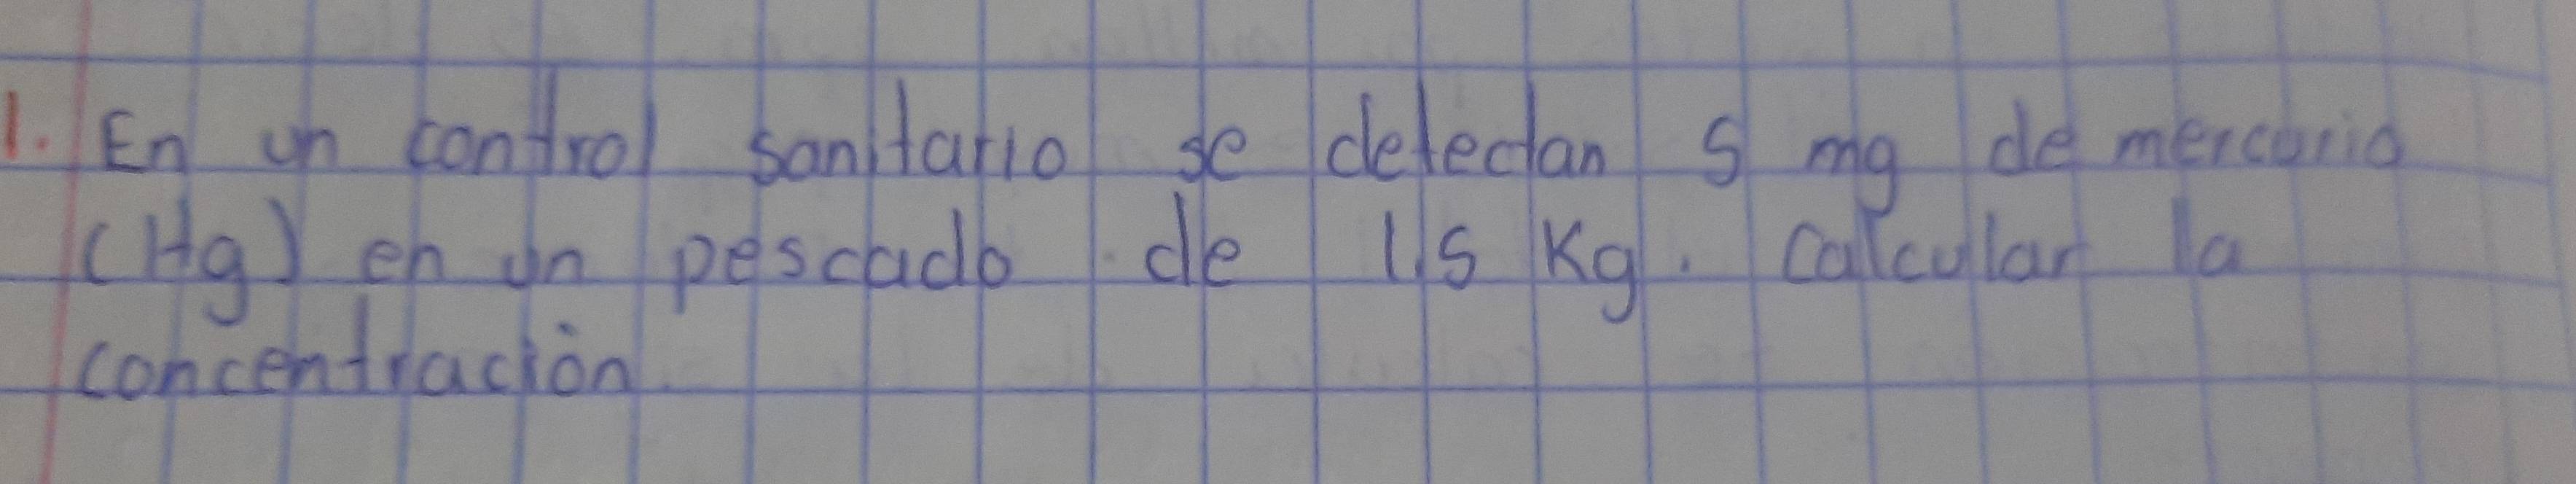 1. En un control sanitario se detectan 5 mg de mercurio
(Hg) en un pescado de 1.5 Kg. Calcular la
concentración